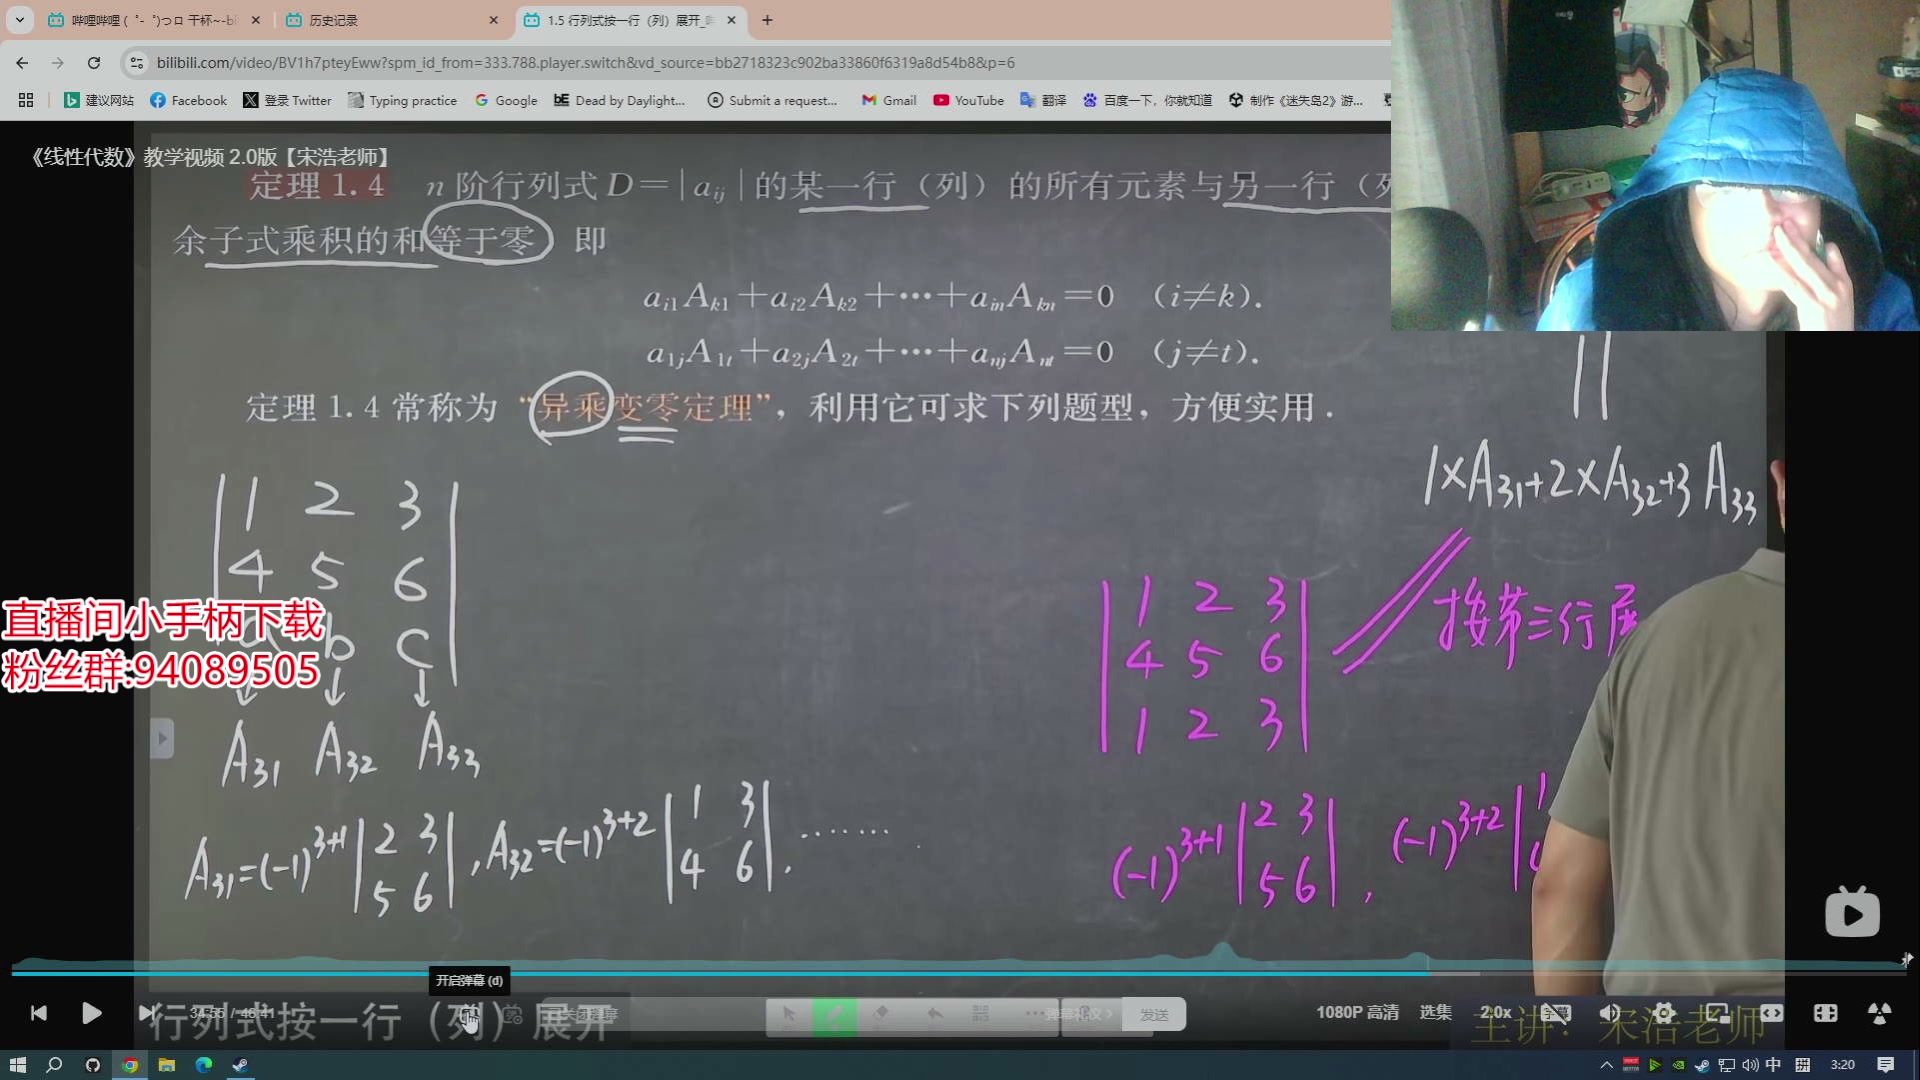 哔哩哔哩 (゜-゜)つロ 干杯~-bi
历史记录
1.5 行列式按一行（列）展开_
bilibili.com/video/BV1h7pteyEww?spm_id_from=333.788.player.switch&vd_source=bb2718323c902ba33860f6319a8d54b8&p=6
建议网站
Facebook
登录 Twitter
Typing practice
Google
Dead by Daylight...
Submit a request...
Gmail
YouTube
翻译
百度一下，你就知道
制作《迷失岛2》游...
《线性代数》教学视频 2.0版【宋浩老师】
定理 1.4 n 阶行列式 D=|aij|的某一行（列）的所有元素与另一行（列
余子式乘积的和等于零 即
ai1Ak1+ai2Ak2+⋯+ainAkn=0 （i≠k）.
a1jA1t+a2jA2t+⋯+anjAnt=0 （j≠t）.
定理 1.4 常称为 “异乘变零定理”，利用它可求下列题型，方便实用.
1×A31+2×A32+3A33
1 2 3
4 5 6
b c
A31 A32 A33
1 2 3
4 5 6
1 2 3
按第三行展
A31=(-1)3+1 |2 3
5 6|, A32=(-1)3+2 |1 3
4 6|, ........
(-1)3+1 |2 3
5 6|, (-1)3+2 |1
直播间小手柄下载
粉丝群:94089505
开启弹幕 (d)
34:55 / 46:41
行列式按一行（列）展开
弹幕礼仪 >
发送
1080P 高清
选集
2.0x
主讲：宋浩老师
中
拼
3:20